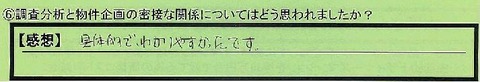 ⑥調査分析と物件企画の密接な関係についてはどう思われましたか?
【感想】 具体的でわかりやすかったです。